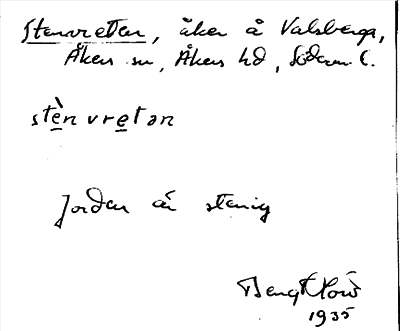 Stenvreten, åker å Valsberga,
Åkers sn, Åkers hd, Söderm. l.
stènvretən
Jorden är stenig
Bengt
1935